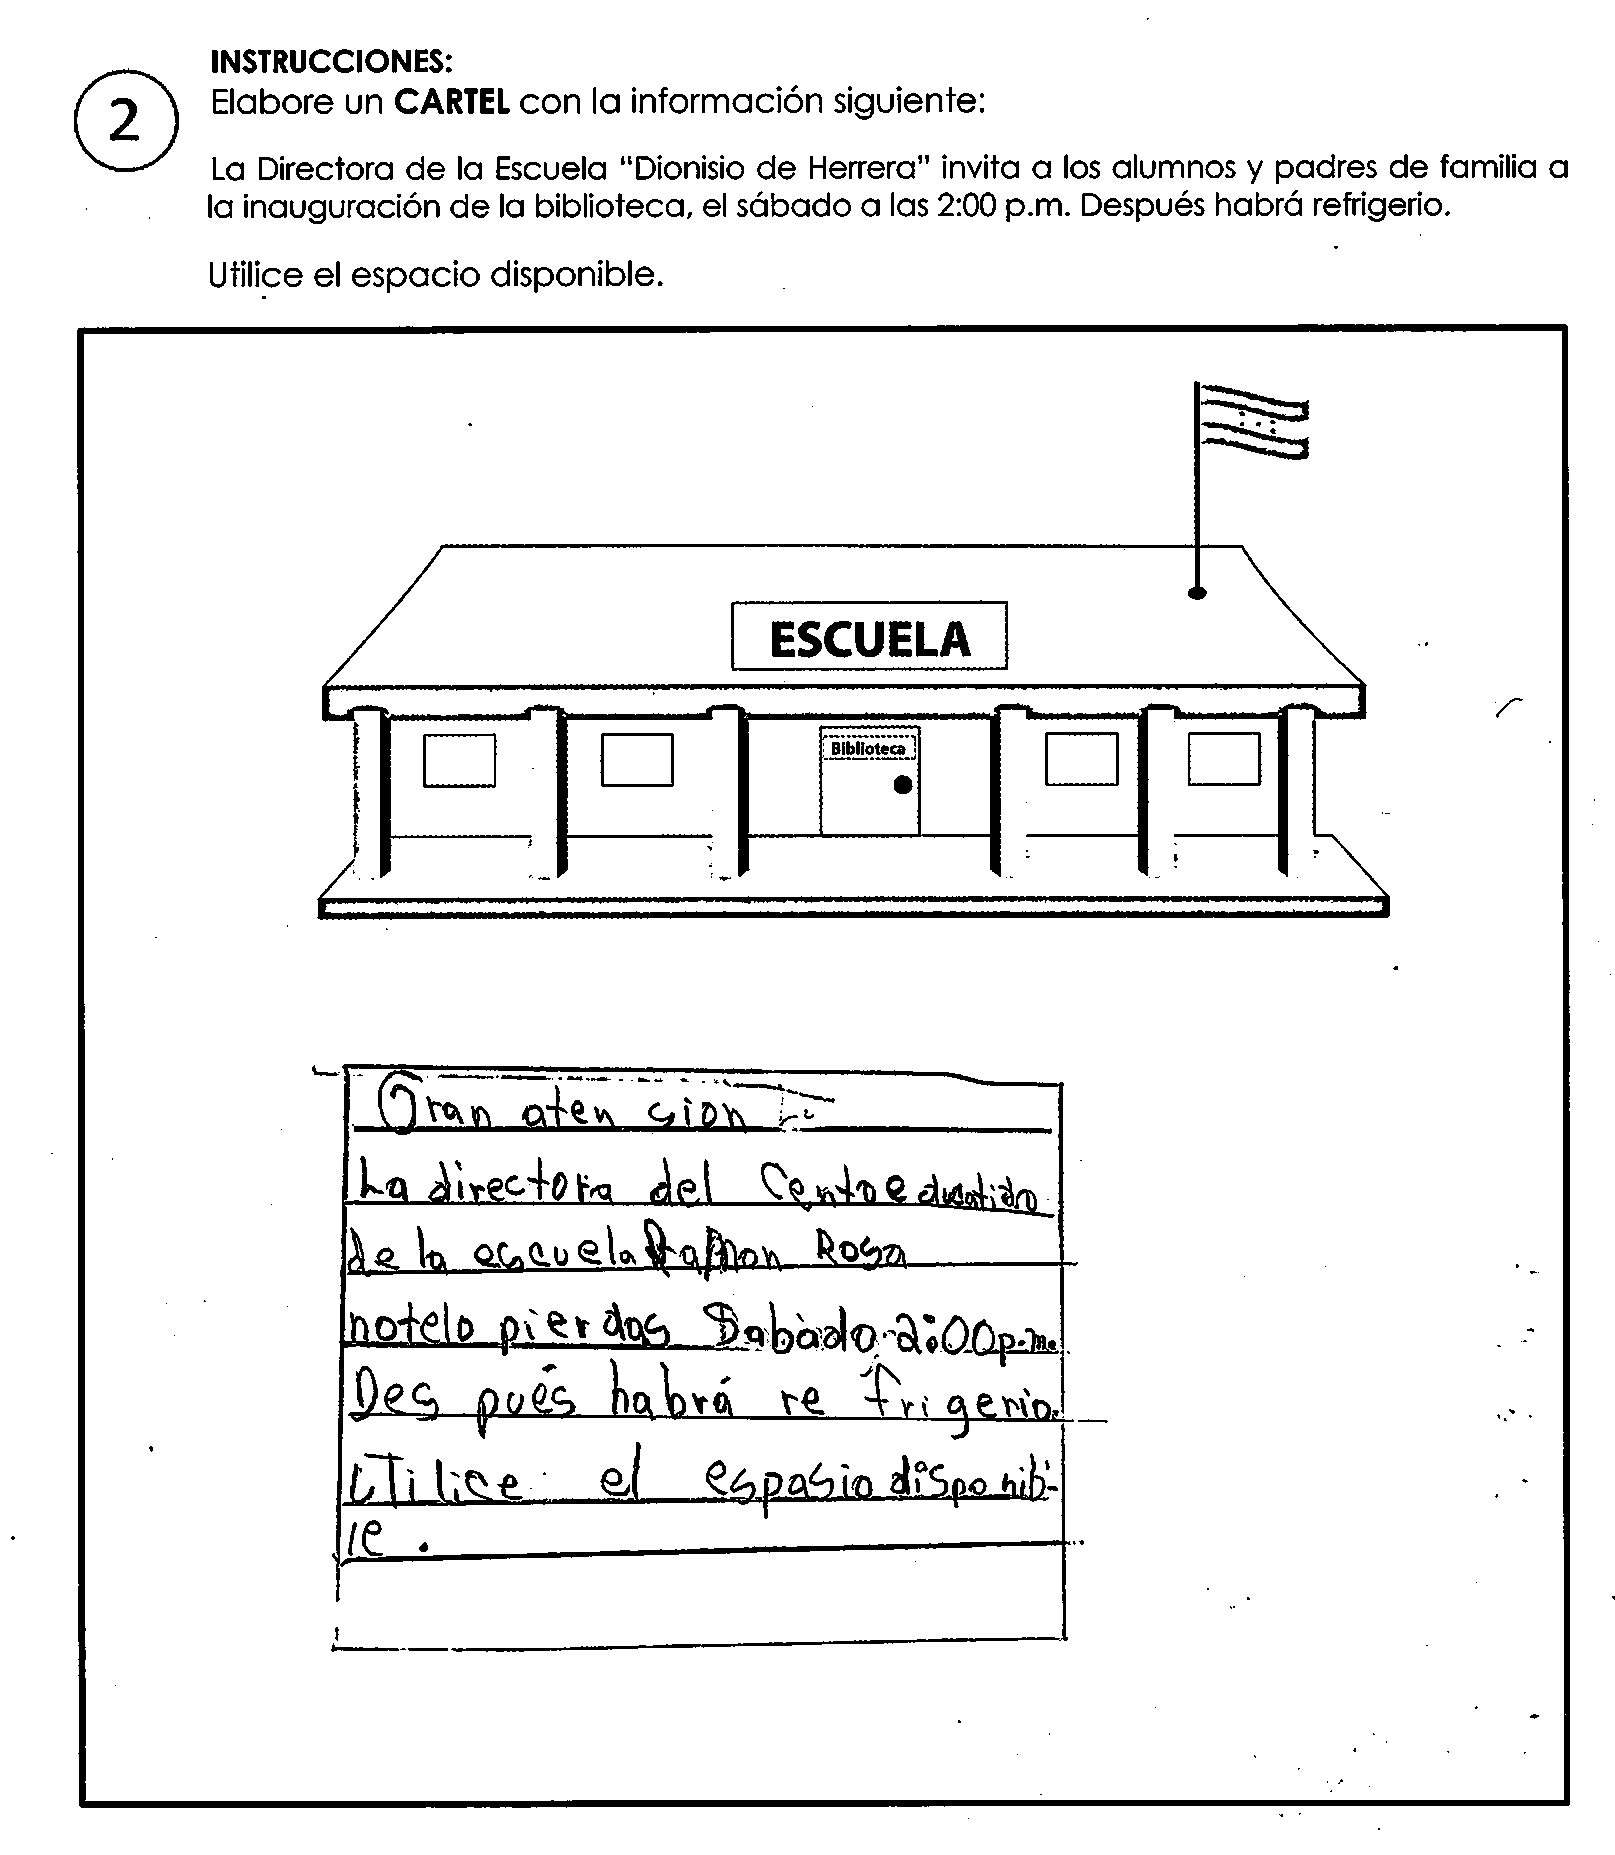 INSTRUCCIONES:
2
Elabore un CARTEL con la información siguiente:
La Directora de la Escuela "Dionisio de Herrera" invita a los alumnos y padres de familia a
la inauguración de la biblioteca, el sábado a las 2:00 p.m. Después habrá refrigerio.
Utilice el espacio disponible.
ESCUELA
Biblioteca
Gran aten sion
La directora del Centoe ducatido
de la escuela Ramon Rosa
notelo pierdas Sabado 2:00p.m.
Des pués habrá re frigerio.
UTilice el espasio disponib-
le.